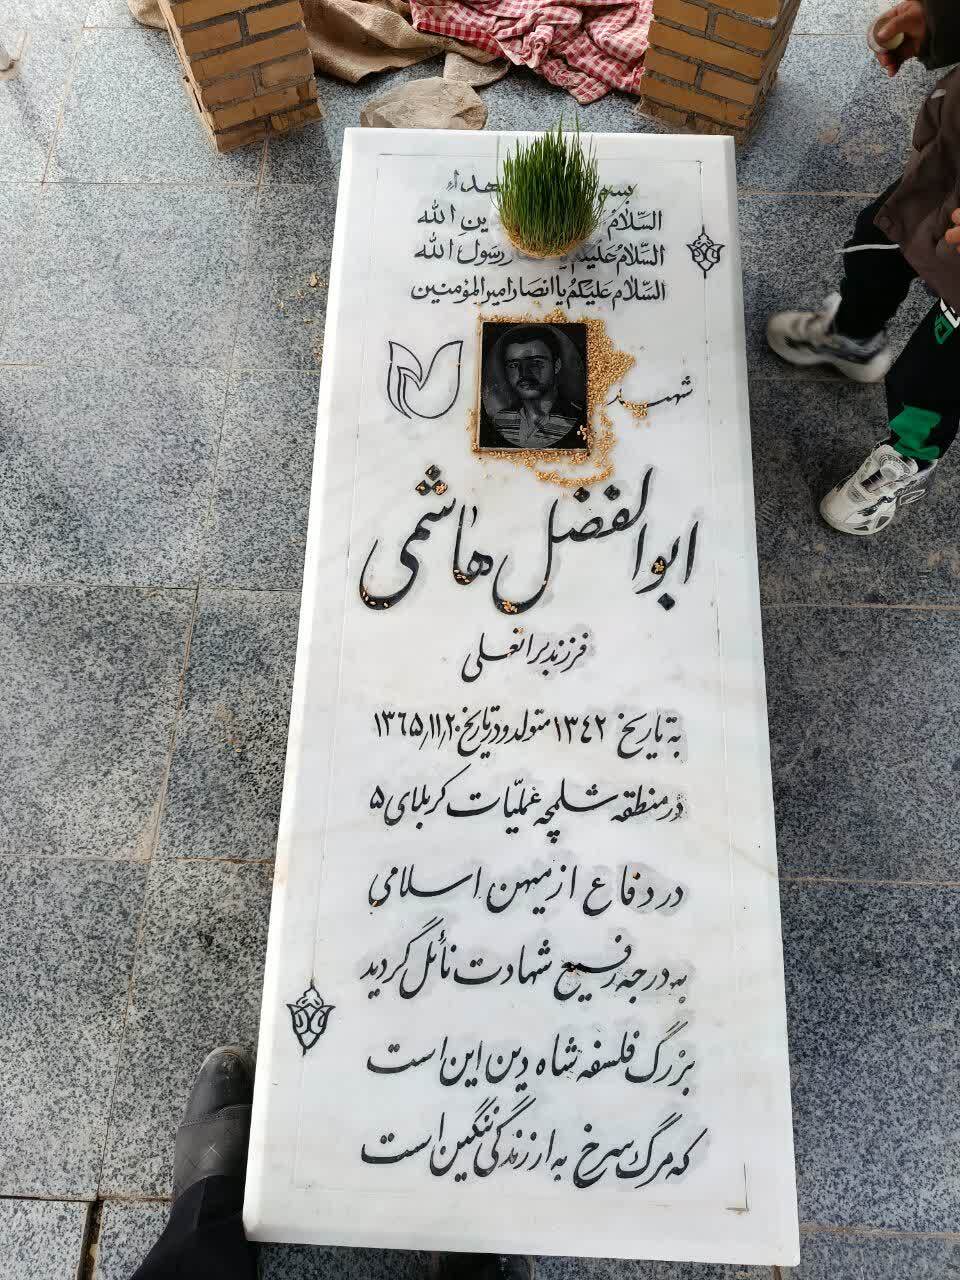 بسم هداء
السّلامُ ینِ الله
السّلامُ عَلیکُم رَسُولَ الله
السّلام عَلیکُم یا انصَار امیر المؤمنین
شهید
ابوالفضل هاشمی
فرزند براتعلی
به تاریخ ۱۳۴۲ متولد و در تاریخ ۱۳۶۵/۱۱/۲۰
در منطقه شلمچه عملیّات کربلای ۵
در دفاع از میهن اسلامی
به درجه رفیع شهادت نائل گردید
بزرگ فلسفه شاه دین این است
که مرگ سرخ به از زندگی ننگین است